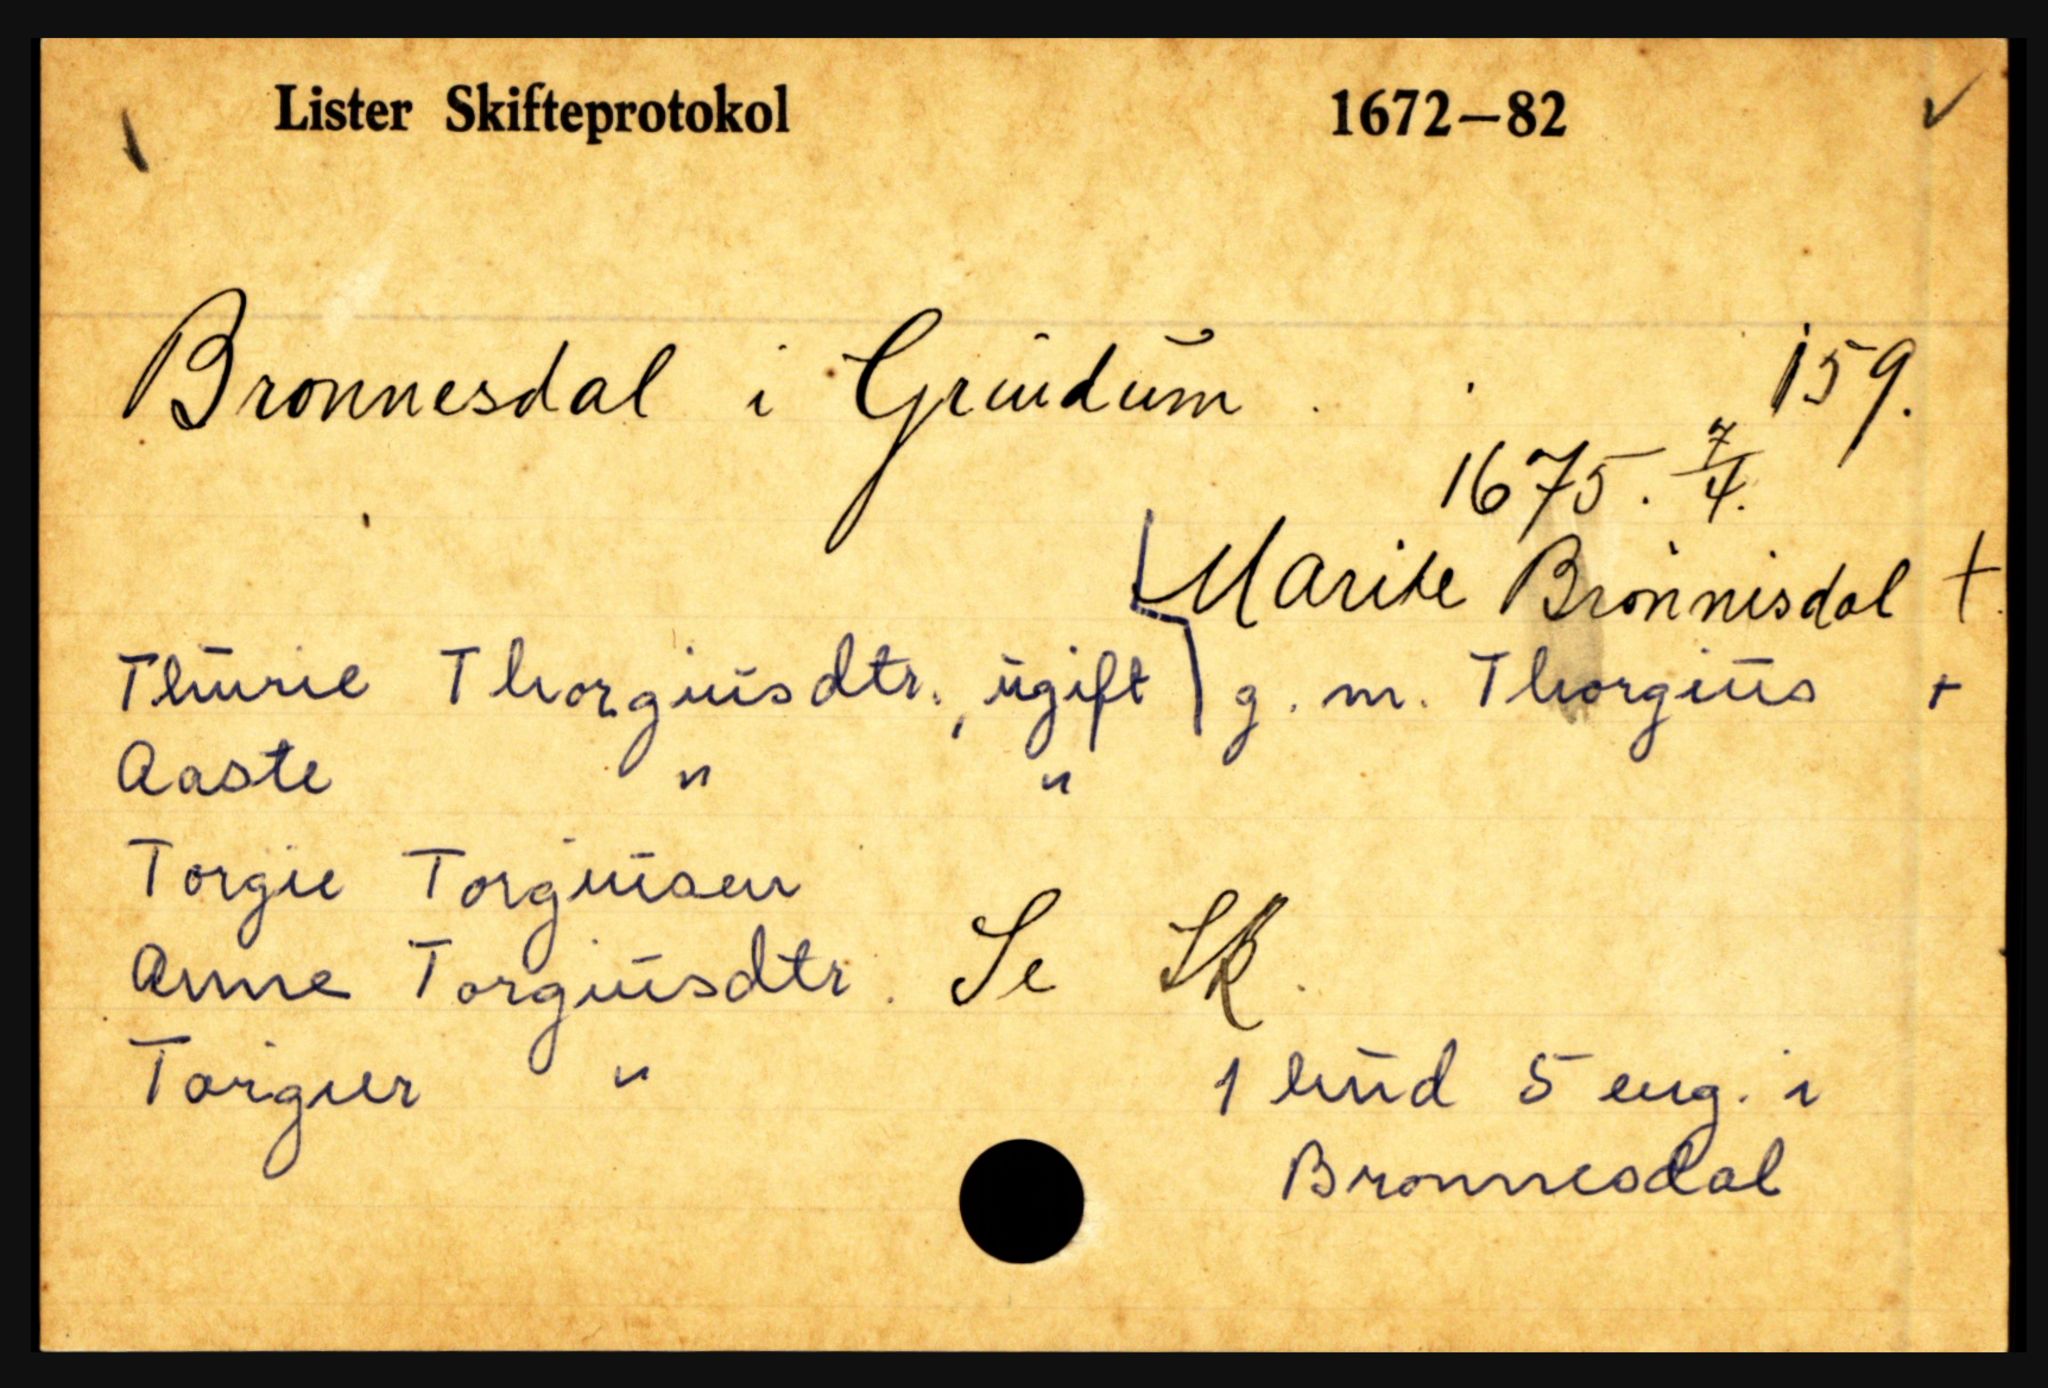 Lister Skifteprotokol 1672–82
Bronnesdal i Grindum. 159.
1675. 7/4.
Marite Brønnisdal †.
Thurie Thorgiusdtr., ugift g. m. Thorgius +
Aaste " "
Torgie Torgiusen
Anne Torgiusdtr. Se Sk.
Torgier " 1 hud 5 eng. i
Bronnesdal